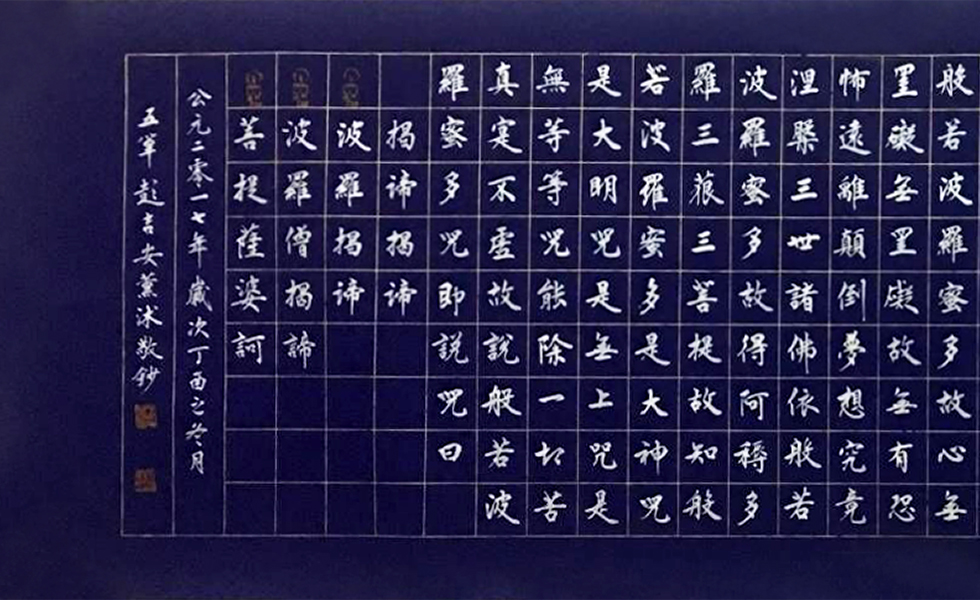 般若波羅蜜多故心無
罣礙無罣礙故無有恐
怖遠離顛倒夢想究竟
涅槃三世諸佛依般若
波羅蜜多故得阿耨多
羅三藐三菩提故知般
若波羅蜜多是大神咒
是大明咒是無上咒是
無等等咒能除一切苦
真寔不虛故說般若波
羅蜜多咒即説咒曰
揭諦揭諦
波羅揭諦
波羅僧揭諦
菩提薩婆訶
公元二零一七年歲次丁酉之冬月
五華彭吉安薰沐敬鈔